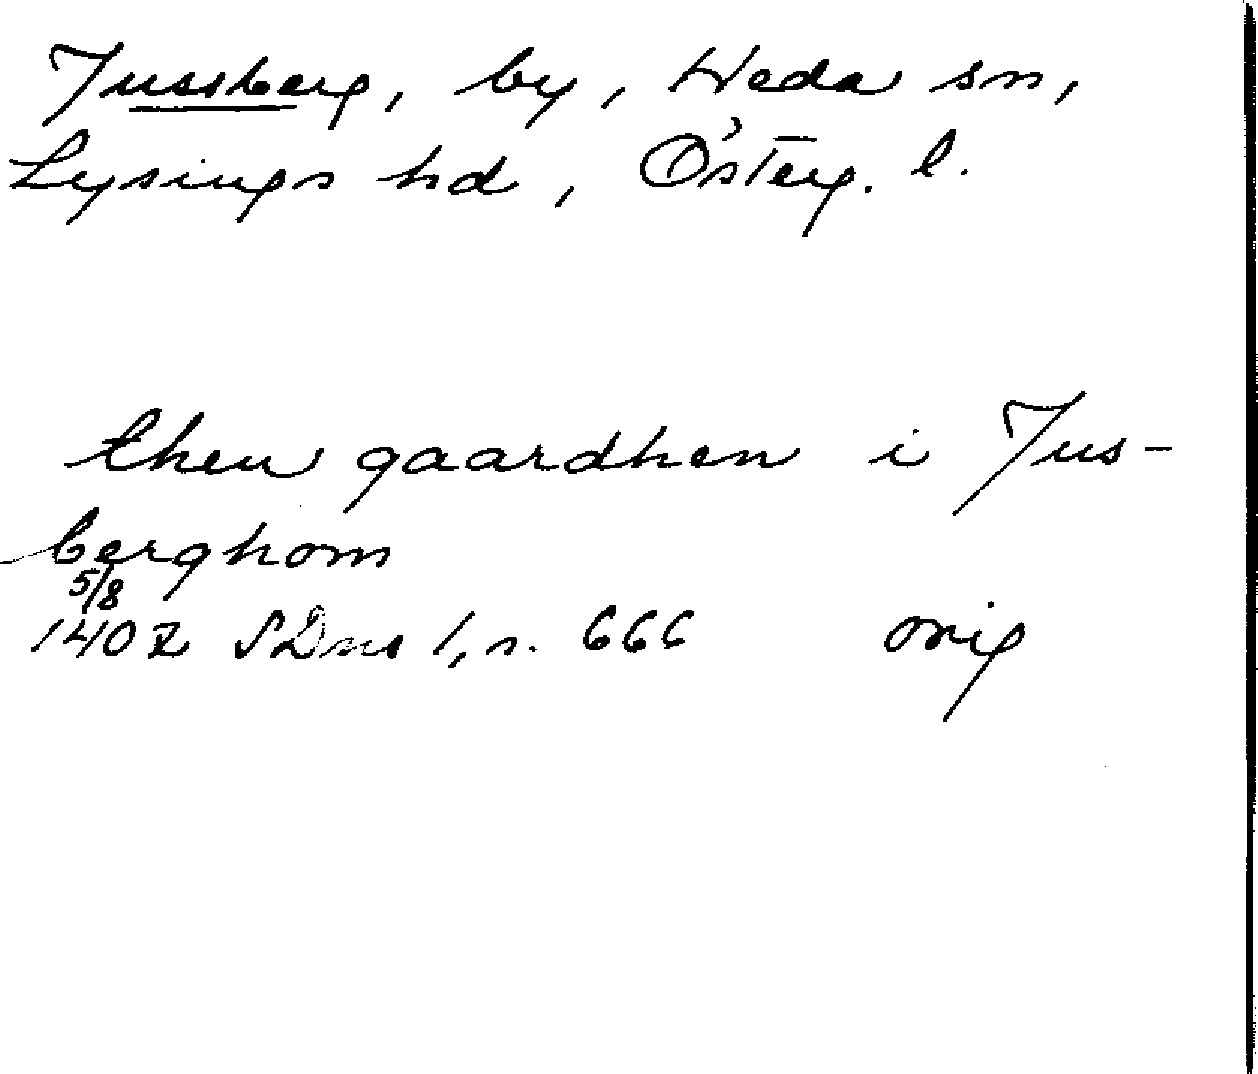 Jussberg, by, Heda sn,
Lysings hd, Österg. l.
then gaardhen i Jus-
berghom
5/8
1407 SDns 1, s. 666 orig